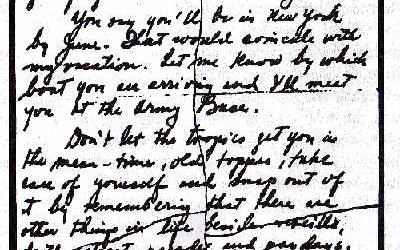 You say you'll be in New York
by June. That would coincide with
my vacation. Let me know by which
boat you are arriving and I'll meet
you at the Army Base.
Don't let the tropics get you in
the mean-time, old toppie, take
care of yourself and snap out of
it by remembering that there are
other things in life beside
and paydays.